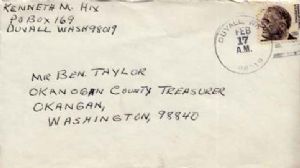 KENNETH M. HIX
PO BOX 169
DUVALL WASH 98019
DUVALL WA
FEB
17
A.M.
MR BEN TAYLOR
OKANOGAN COUNTY TREASURER
OKANGAN,
WASHINGTON, 98840